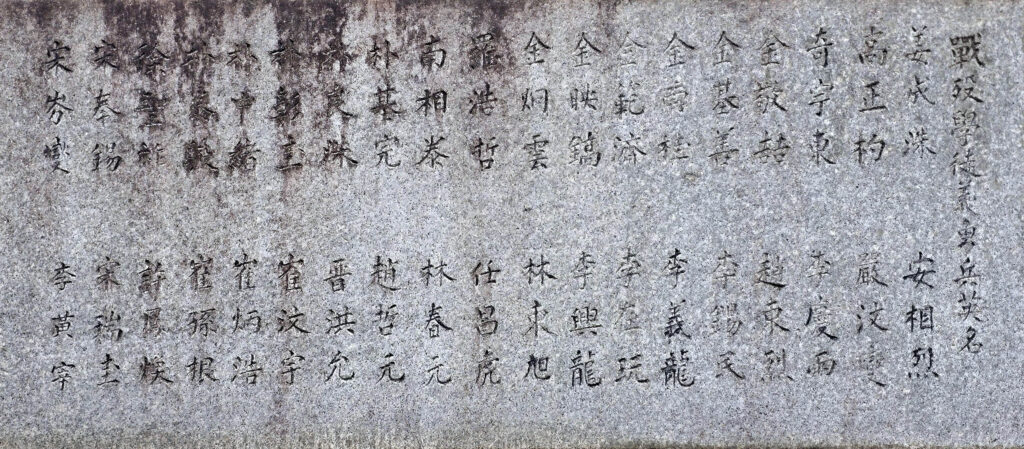 戰歿學徒義勇兵英名
姜成洙
高正杓
奇宇東
金敬喆
金基善
金南桂
金範濟
金映鎬
金炯雲
羅浩哲
南相泰
朴基完
朴良洙
朴彰圭
朴中緖
朴
徐聖
宋奉錫
宋岑燮
安相烈
嚴汶燮
李慶雨
趙東烈
李錫民
李義龍
李在玩
李興龍
林東旭
任昌虎
林春元
趙哲元
晋洪允
崔汶宇
崔炳浩
崔孫根
許鳳煥
宋瑞圭
李黃宰